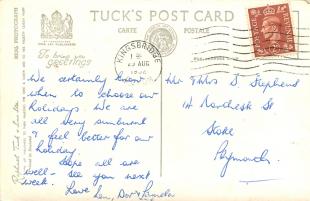 TUCK'S POST CARD
CARTE POSTALE
KINGSBRIDGE
AUG
To bring you
greetings
We certainly know
when to choose our
holidays. We are
all very sunburnt
& feel better for our
holiday.
Hope all are
well - see you next
week.
Love
Len, Dor & Pamela
Mr & Mrs J Stephens
Stoke
Plymouth.
Raphael Tuck & Sons Ltd